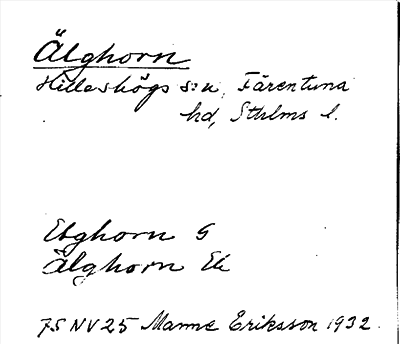 Älghorn
Hilleshögs sn, Färentuna
hd, Sthlms l.
Elghorn G
Älghorn Ek
75 NV 25 Manne Eriksson 1932.